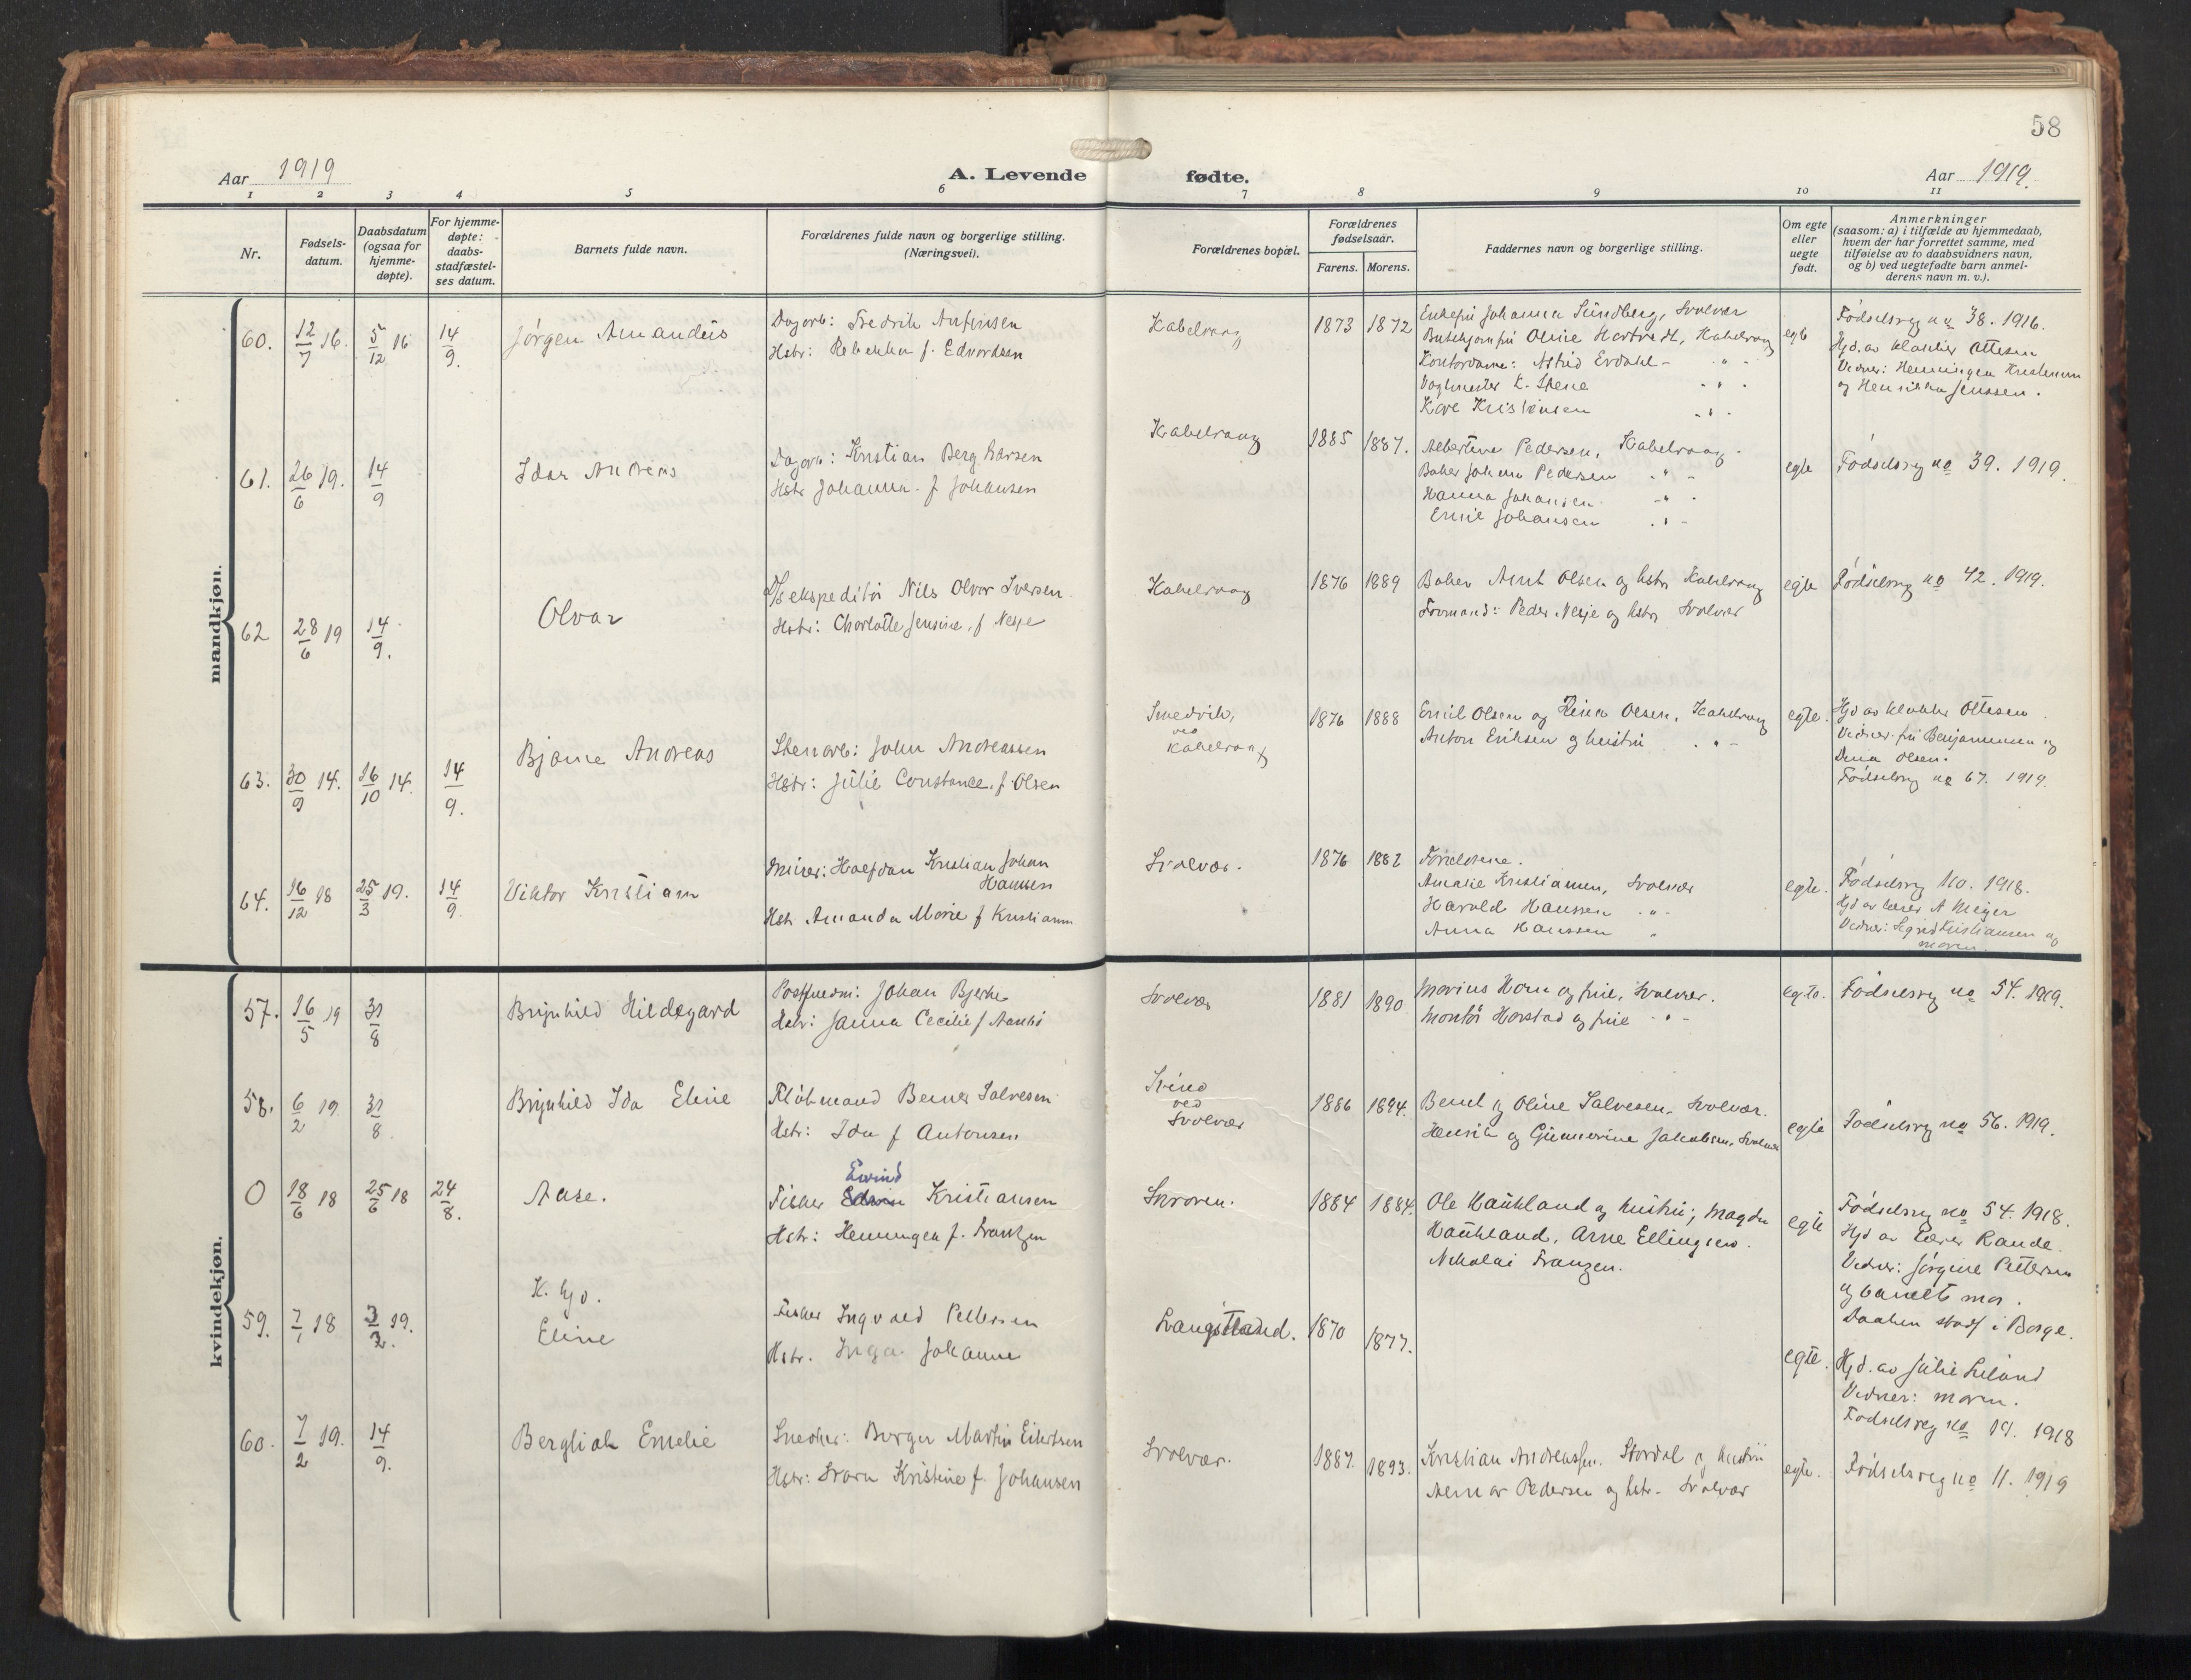 58
Aar 1919
A. Levende fødte.
Aar 1919.
1 2 3 4 5 6 7 8 9 10 11
Nr.
Fødsels-
datum.
Daabsdatum
(ogsaa for
hjemme-
døpte).
For hjemme-
døpte:
daabs-
stadfæstel-
ses datum.
Barnets fulde navn.
Forældrenes fulde navn og borgerlige stilling.
(Næringsvei).
Forældrenes bopæl.
Forældrenes
fødselsaar.
Farens. Morens.
Faddernes navn og borgerlige stilling.
Om egte
eller
uegte
født.
Anmerkninger
(saasom: a) i tilfælde av hjemmedaab,
hvem der har forrettet samme, med
tilføielse av to daabsvidners navn,
og b) ved uegtefødte barn anmel-
derens navn m. v.).
mandkjøn.
60. 12/7 16. 5/12 16 14/9.
Jørgen Amandus
Dagarb: Fredrik Antonsen
Hstr: Rebekka f. Edvardsen
Kabelvaag
1873 1872
Enkefru Johanna Sundberg, Svolvær
Oline Hartvedt, Kabelvaag
Kontordame: Astrid Evdahl - " -
Vagtmester K. Stene - " -
Kåre Kristensen - " -
egte
Fødselsreg no 38. 1916.
Hjd. av klokker Ottesen
Vidner: Henningea Kristensen
og Henrikka Jenssen.
61. 26/6 19. 14/9
Idar Andreas
Dagarb: Kristian Berg Larsen
Hstr Johanna f Johansen
Kabelvaag
1885 1887.
Albertine Pedersen, Kabelvaag.
Baker Johan Pedersen - " -
Hanna Johansen - " -
Emil Johansen - " -
egte
Fødselsreg no 39. 1919.
62 28/6 19 14/9.
Olvar
D/S ekspeditør Nils Olvar Iversen
Hstr: Charlotte Jensine, f Nesje
Kabelvaag
1876 1889
Baker Arnt Olsen og hstr Kabelvaag
Formand: Peder Nesje og hstr Svolvær
egte
Fødselsreg no 42. 1919.
63. 30/9 14. 16/10 14. 14/9.
Bjarne Andreas
Stenarb: John Andreassen
Hstr: Julie Constance, f. Olsen
Smedvik,
ved
Kabelvaag
1876 1888
Emil Olsen og Dina Olsen, Kabelvaag
Anton Eriksen og hustru - " -
egte.
Hjd av klokker Ottesen
Vidner: fru Benjaminsen og
Dina Olsen.
Fødselsreg no 67. 1919.
64. 16/12 18 25/3 19. 14/9.
Viktor Kristian
Murer: Halfdan Kristian Johan
Hanssen
Hstr Amanda Marie f Kristiansen
Svolvær.
1876 1882
Forældrene.
Amalie Kristiansen, Svolvær
Harald Hanssen - " -
Anna Hanssen "
egte.
Fødselsreg 110. 1918.
Hjd av lærer A Meyer
Vidner: Sigrid Kristiansen og
moren.
kvindekjøn.
57. 16/5 19 31/8
Brynhild Hildegard
Postfuldm: Johan Bjerke
Hstr: Janna Cecilie f
Svolvær
1881 1890
Marius Horn og frue, Svolvær.
Montør Harstad og frue - " -
egte.
Fødselsreg no 54. 1919.
58. 6/2 19. 31/8.
Brynhild Ida Eline
Fløtmand Berner Salvesen
Hstr: Ida f Antonsen
Svinø
ved
Svolvær
1886 1894.
Bernt og Oline Salvesen. Svolvær.
Henrik og Gunnerine Jakobsen, Svolvær
egte
Fødselsreg no 56. 1919.
0 18/6 18 25/6 18 24/8.
Aase.
Eivind
Fisker Edvin Kristiansen
Hstr: Henningea f. Frantzen
Skroven.
1884 1884.
Ole Haukland og hustru; Magda
Haukland, Arne Ellingsen.
Nikolai Franzen.
egte
Fødselsreg no 54. 1918.
Hjd av Lærer Rande.
Vidner: Jørgine Pettersen
og barnets mor.
Daaben stadf i Borge.
59. 7/1 18 3/2 19.
K. hjd.
Eline
Fisker Ingvald Pettersen
Hstr. Inga Johanne
Langstrand.
1870 1877.
egte.
Hjd. av Julie Leland
Vidner: moren.
Fødselsreg no 19. 1918
60. 7/2 19. 14/9.
Bergliot Emelie
Snedker: Borger Martin Eilertsen
Hstr: Svava Kristine f. Johansen
Svolvær.
1887. 1893.
Kristian Andreassen. Stordal og hustru
Almar Pedersen og hstr- Svolvær
egte.
Fødselsreg no 11. 1919